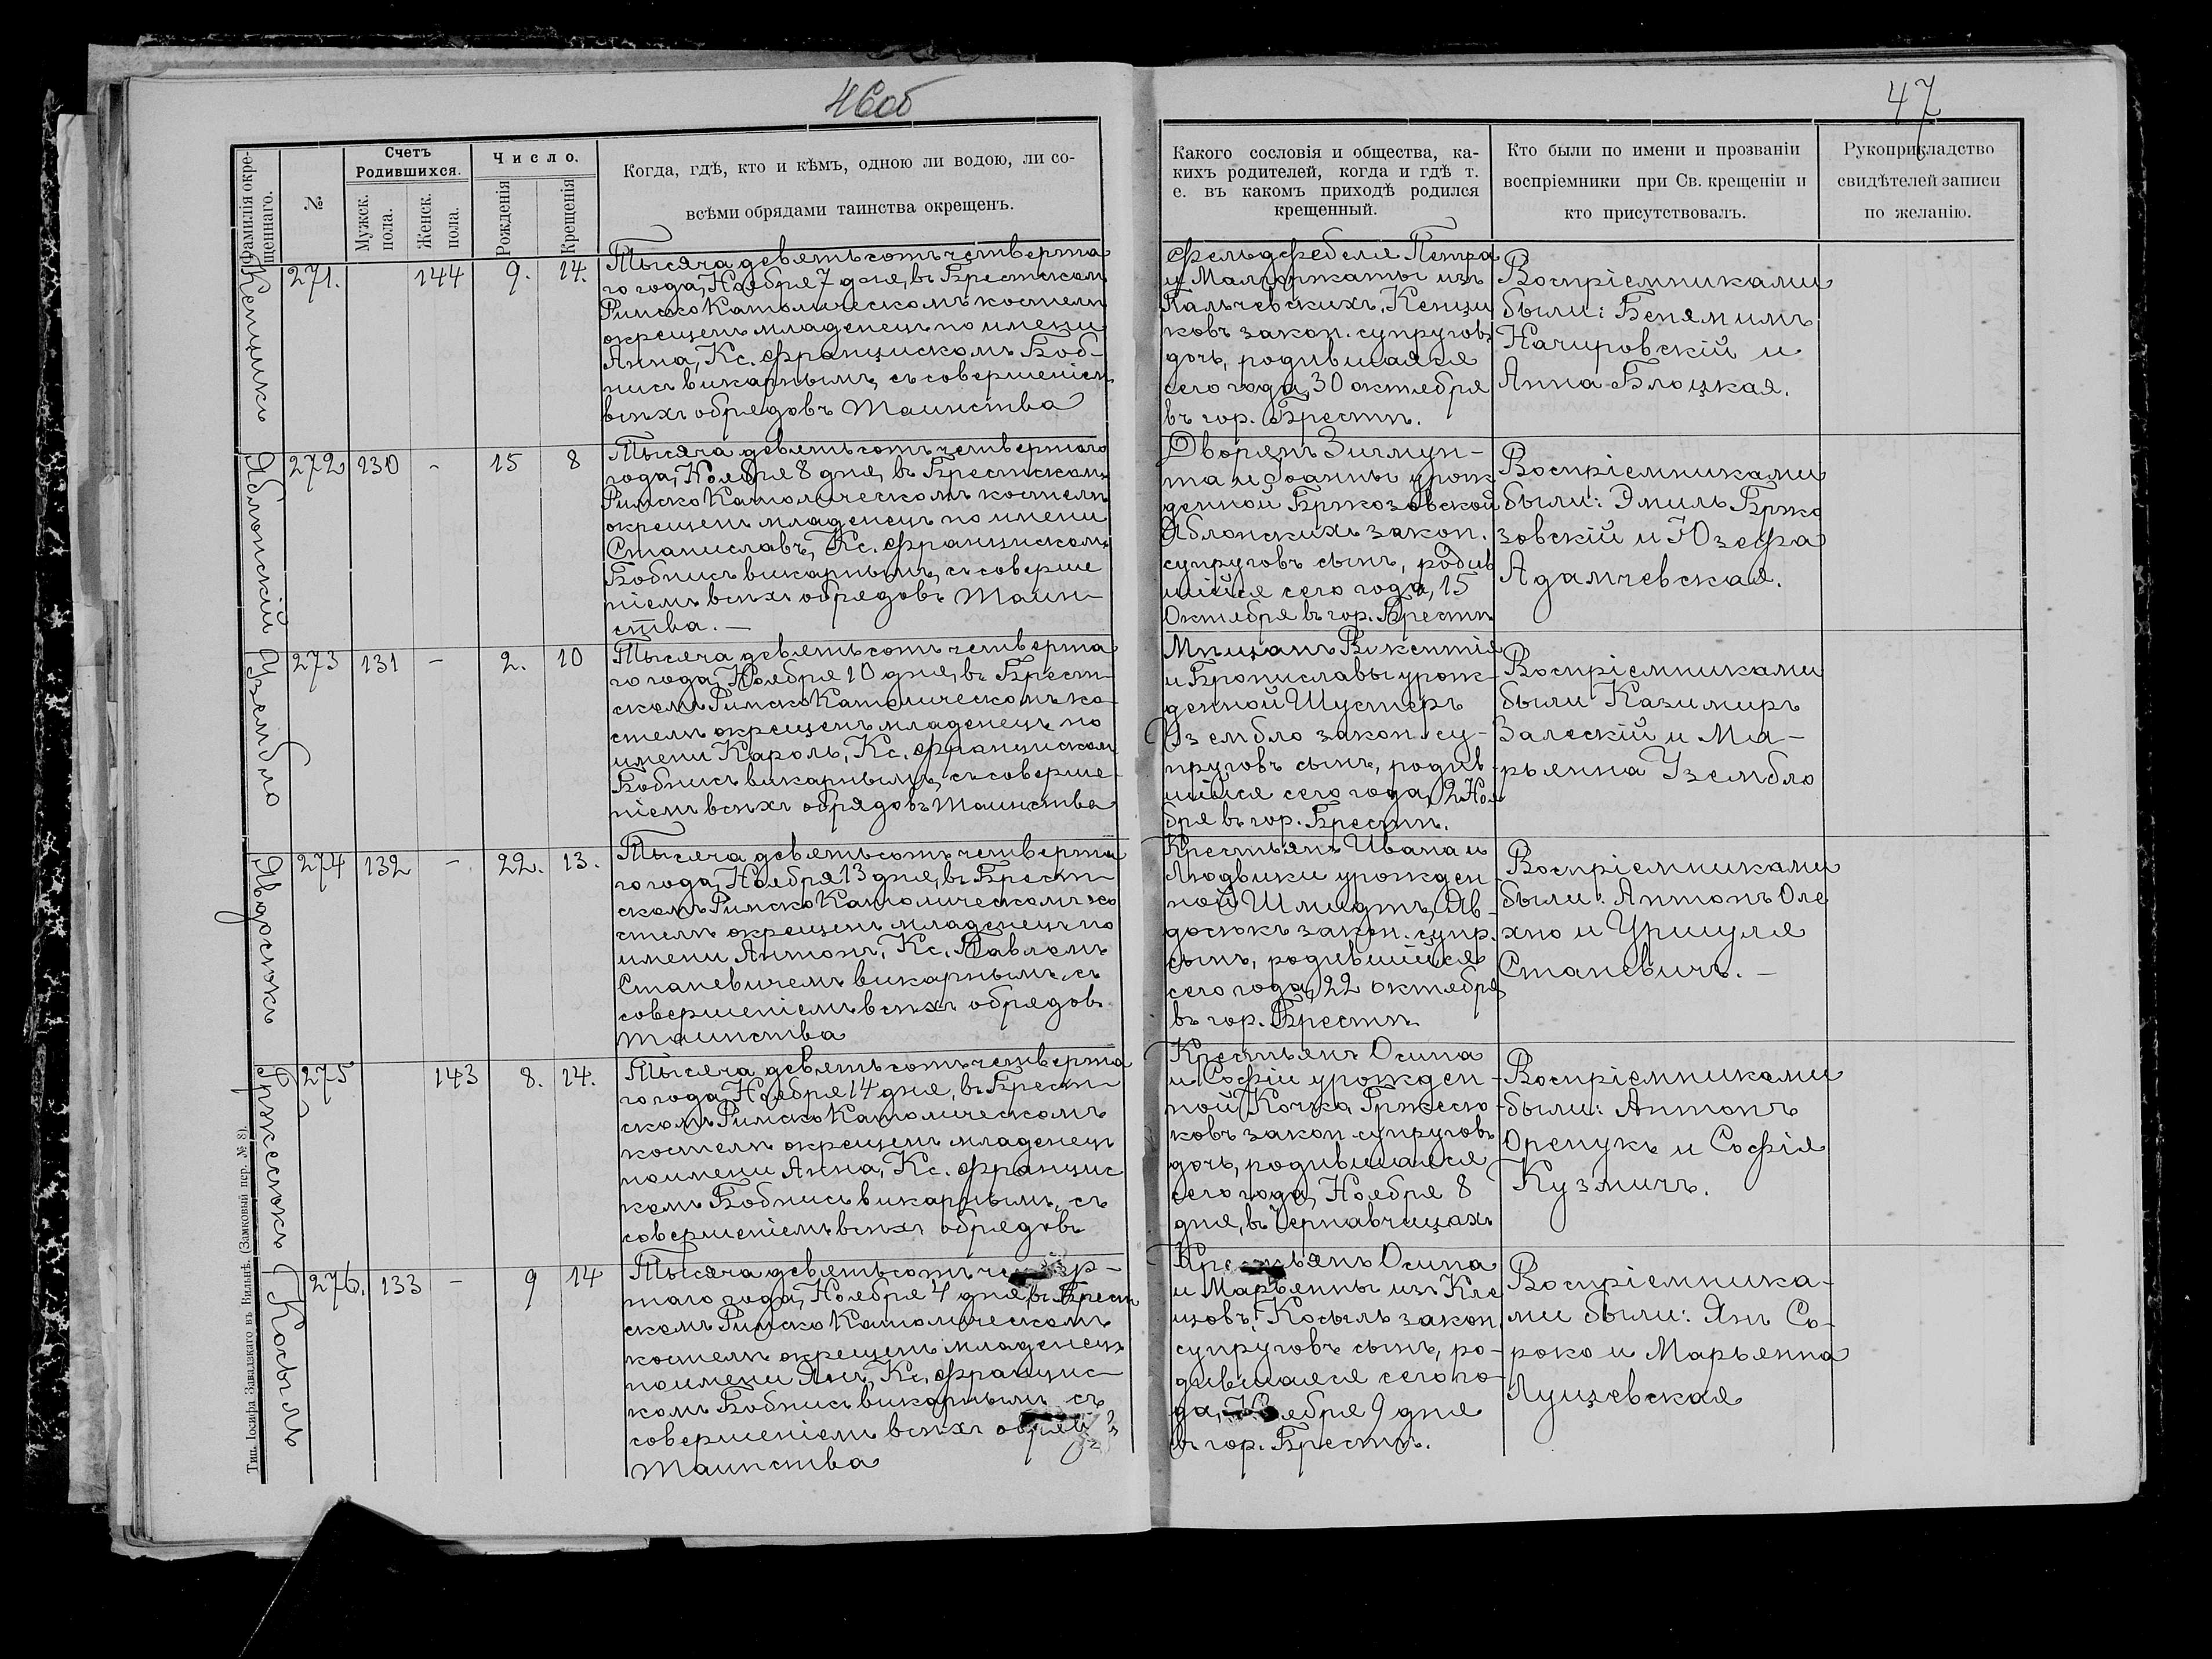 46об
47
Фамилія окре-
щеннаго.
№
Счетъ
Родившихся.
Мужск.
пола.
Женск.
пола.
Число.
Рожденія
Крещенія
Когда, гдѣ, кто и кѣмъ, одною ли водою, ли со-
всѣми обрядами таинства окрещенъ.
Какого сословія и общества, ка-
кихъ родителей, когда и гдѣ т.
е. въ какомъ приходѣ родился
крещенный.
Кто были по имени и прозваніи
воспріемники при Св. крещеніи и
кто присутствовалъ.
Рукоприкладство
свидѣтелей записи
по желанію.
Кенцикъ
271.
144
9.
14.
Тысяча девятьсотъ четверта
го года, Ноября 7 дня, въ Брестском
Римско Католическомъ костелѣ
окрещенъ младенецъ по имени
Анна, Кс. Францискомъ Боб-
нисъ викарнымъ, съ совершеніем
всѣхъ обрядовъ Таинства
Фельдфебеля Петра
и Малгоржаты изъ
Пальчевскихъ, Кенци
ковъ закон. супруговъ
дочь, родившаяся
сего года, 30 октября
въ гор. Брестѣ.
Воспріемниками
были: Бенямимъ
Начировскій и
Анна Блоцкая.
Яблонскій
272
130
-
15
8
Тысяча девятьсотъ четвертого
года, Ноября 8 дня, въ Брестскомъ
Римско Католическомъ костелѣ
окрещенъ младенецъ по имени
Станиславъ, Кс. Францискомъ
Бобнисъ викарнымъ, съ соверше
ніемъ всѣхъ обрядовъ Таин-
ства. —
Дворянъ Зигмун-
та и Іоанны урож
денной Бржозовской
Яблонскихъ закон.
супруговъ сынъ, родив
шійся сего года, 15
Октября въ гор. Брестѣ
Воспріемниками
были: Эмиль Бржо
зовскій и Юзефа
Адамчевская.
Узембло
273
131
-
2.
10
Тысяча девятьсотъ четверта
го года, Ноября 10 дня, въ Брест-
скомъ Римско Католическомъ ко-
стелѣ окрещенъ младенецъ по
имени Кароль, Кс. Францискомъ
Бобнисъ викарнымъ, съ соверше-
ніемъ всѣхъ обрядовъ Таинства
Мѣщанъ Викентія
и Брониславы урож-
денной Шустеръ
Узембло закон. су-
пруговъ сынъ, родив-
шійся сего года, 2 Ноя
бря въ гор. Брестѣ.
Воспріемниками
были Казимиръ
Залескій и Ма-
рьянна Узембло
Явдосюкъ
274
132
-
22.
13.
Тысяча девятьсотъ четверта
го года, Ноября 13 дня, въ Брест-
скомъ Римско Католическомъ ко
стелѣ окрещенъ младенецъ по
имени Антонъ, Кс. Павломъ
Станевичемъ викарнымъ, съ
совершеніемъ всѣхъ обрядовъ
Таинства
Крестьянъ Ивана и
Людвики урожден
ной Шмидтъ, Яв-
досюкъ закон. супр.
сынъ, родившійся
сего года, 22 октября
въ гор. Брестѣ
Воспріемниками
были: Антонъ Оле
хно и Уршуля
Станевичъ. —
Гржесюкъ
275
143
8.
14.
Тысяча девятьсотъ четверта
го года, Ноября 14 дня, въ Брест-
скомъ Римско Католическомъ
костелѣ окрещенъ младенецъ
по имени Анна, Кс. Францис
комъ Бобнисъ викарнымъ, съ
совершеніемъ всѣхъ обрядовъ
Крестьянъ Осипа
и Софіи урожден-
ной Кочка Гржесю-
ковъ закон супруговъ
дочь, родившаяся
сего года, Ноября 8
дня, въ Чернавчицахъ
Воспріемниками
были: Антонъ
Оренукъ и Софія
Кузмичъ.
Косыль
276.
133
-
9
14
Тысяча девятьсотъ четвер-
таго года, Ноября 4 дня, въ Брест
скомъ Римско Католическомъ
костелѣ окрещенъ младенецъ
по имени Янъ, Кс. Францис-
комъ Бобнисъ викарнымъ съ
совершеніемъ всѣхъ
Таинства
Крестьянъ Осипа
и Марьянны изъ Кле
щовъ, Косыль закон.
супруговъ сынъ, ро-
дившаяся сего го-
да, Ноября 9 дня
въ гор. Брестѣ.
Воспріемника-
ми были: Янъ Со-
роко и Марьянна
Лущевская
Тип. Іосифа Завадзкаго въ Вильнѣ. (Замковый пер. № 8).